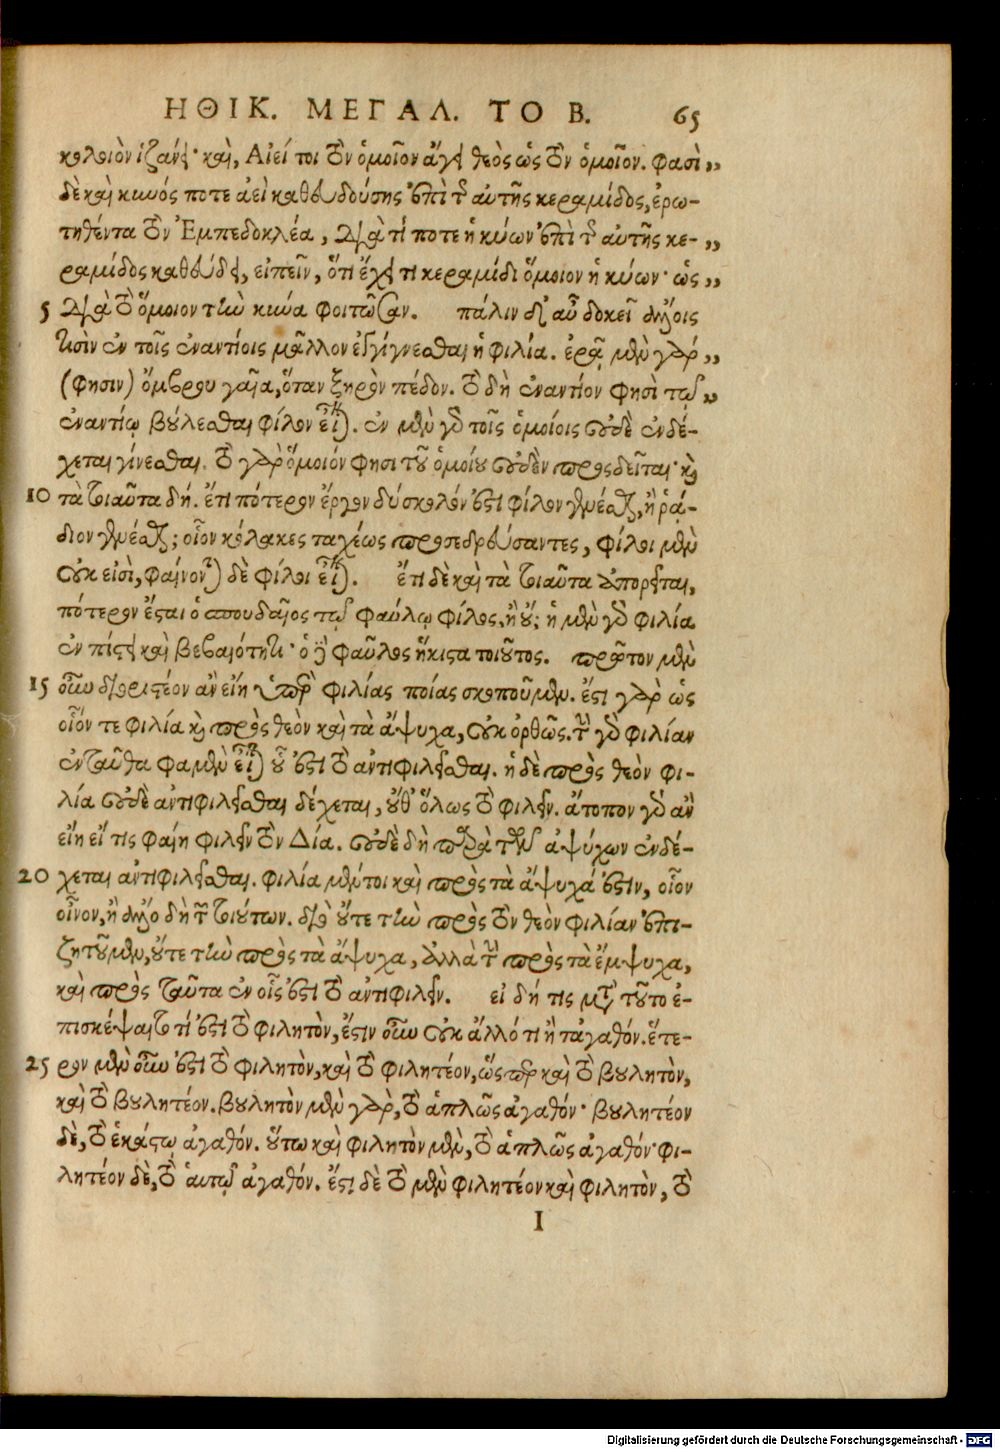 ΗΘΙΚ. ΜΕΓΑΛ. ΤΟ Β. 65
κολοιὸν ἱζάνει· καὶ, Αἰεί τοι τὸν ὁμοῖον ἄγει θεὸς ὡς τὸν ὁμοῖον. φασὶ ,,
δὲ καὶ κυνός ποτε ἀεὶ καθευδούσης ἐπὶ τῆς αὐτῆς κεραμίδος, ἐρω-
τηθέντα τὸν Ἐμπεδοκλέα, διὰ τί ποτε ἡ κύων ἐπὶ τῆς αὐτῆς κε- ,,
ραμίδος καθεύδει, εἰπεῖν, ὅτι ἔχει τι κεραμίδι ὅμοιον ἡ κύων· ὡς ,,
5 διὰ τὸ ὅμοιον τὴν κύνα φοιτῶσαν. πάλιν δ' αὖ δοκεῖ ἄλλοις
τισὶν ἐν τοῖς ἐναντίοις μᾶλλον ἐγγίγνεσθαι ἡ φιλία. ἐρᾷ μὲν γὰρ ,,
(φησιν) ὄμβρου γαῖα, ὅταν ξηρὸν πέδον. τὸ δὴ ἐναντίον φησὶ τῷ ,,
ἐναντίῳ βούλεσθαι φίλον εἶναι. ἐν μὲν γὰρ τοῖς ὁμοίοις οὐδὲ ἐνδέ-
χεται γίνεσθαι. τὸ γὰρ ὅμοιόν φησι τοῦ ὁμοίου οὐδὲν προσδεῖται· καὶ
10 τὰ τοιαῦτα δή. ἔτι πότερον ἔργον δύσκολόν ἐστι φίλον γενέσθαι, ἢ ῥᾴ-
διον γενέσθαι; οἷον κόλακες ταχέως προσεδρεύσαντες, φίλοι μὲν
οὐκ εἰσὶ, φαίνονται δὲ φίλοι εἶναι. ἔτι δὲ καὶ τὰ τοιαῦτα ἀπορεῖται,
πότερον ἔσται ὁ σπουδαῖος τῷ φαύλῳ φίλος, ἢ οὔ; ἡ μὲν γὰρ φιλία
ἐν πίστει καὶ βεβαιότητι· ὁ δὲ φαῦλος ἥκιστα τοιοῦτος. πρῶτον μὲν
15 οὖν διοριστέον ἂν εἴη ὑπὲρ φιλίας ποίας σκοποῦμεν. ἔστι γὰρ ὡς
οἷόν τε φιλία καὶ πρὸς θεὸν καὶ τὰ ἄψυχα, οὐκ ὀρθῶς. τὴν γὰρ φιλίαν
ἐνταῦθα φαμὲν εἶναι οὗ ἐστι τὸ ἀντιφιλεῖσθαι. ἡ δὲ πρὸς θεὸν φι-
λία οὐδὲ ἀντιφιλεῖσθαι δέχεται, οὔθ' ὅλως τὸ φιλεῖν. ἄτοπον γὰρ ἂν
εἴη εἴ τις φαίη φιλεῖν τὸν Δία. οὐδὲ δὴ παρὰ τῶν ἀψύχων ἐνδέ-
20 χεται ἀντιφιλεῖσθαι. φιλία μέντοι καὶ πρὸς τὰ ἄψυχά ἐστιν, οἷον
οἶνον, ἢ ἄλλο δὴ τῶν τοιούτων. διὸ οὔτε τὴν πρὸς τὸν θεὸν φιλίαν ἐπι-
ζητοῦμεν, οὔτε τὴν πρὸς τὰ ἄψυχα, ἀλλὰ τὴν πρὸς τὰ ἔμψυχα,
καὶ πρὸς ταῦτα ἐν οἷς ἐστι τὸ ἀντιφιλεῖν. εἰ δή τις μετὰ τοῦτο ἐ-
πισκέψαιτο τί ἐστι τὸ φιλητὸν, ἔστιν οὖν οὐκ ἄλλό τι ἢ τἀγαθόν. ἕτε-
25 ρον μὲν οὖν ἐστι τὸ φιλητὸν, καὶ τὸ φιλητέον, ὥσπερ καὶ τὸ βουλητὸν,
καὶ τὸ βουλητέον. βουλητὸν μὲν γὰρ, τὸ ἁπλῶς ἀγαθόν· βουλητέον
δὲ, τὸ ἑκάστῳ ἀγαθόν. οὕτω καὶ φιλητὸν μὲν, τὸ ἁπλῶς ἀγαθόν· φι-
λητέον δὲ, τὸ αὑτῷ ἀγαθόν. ἔστι δὲ τὸ μὲν φιλητέον καὶ φιλητὸν, τὸ
I
Digitalisierung gefördert durch die Deutsche Forschungsgemeinschaft - DFG